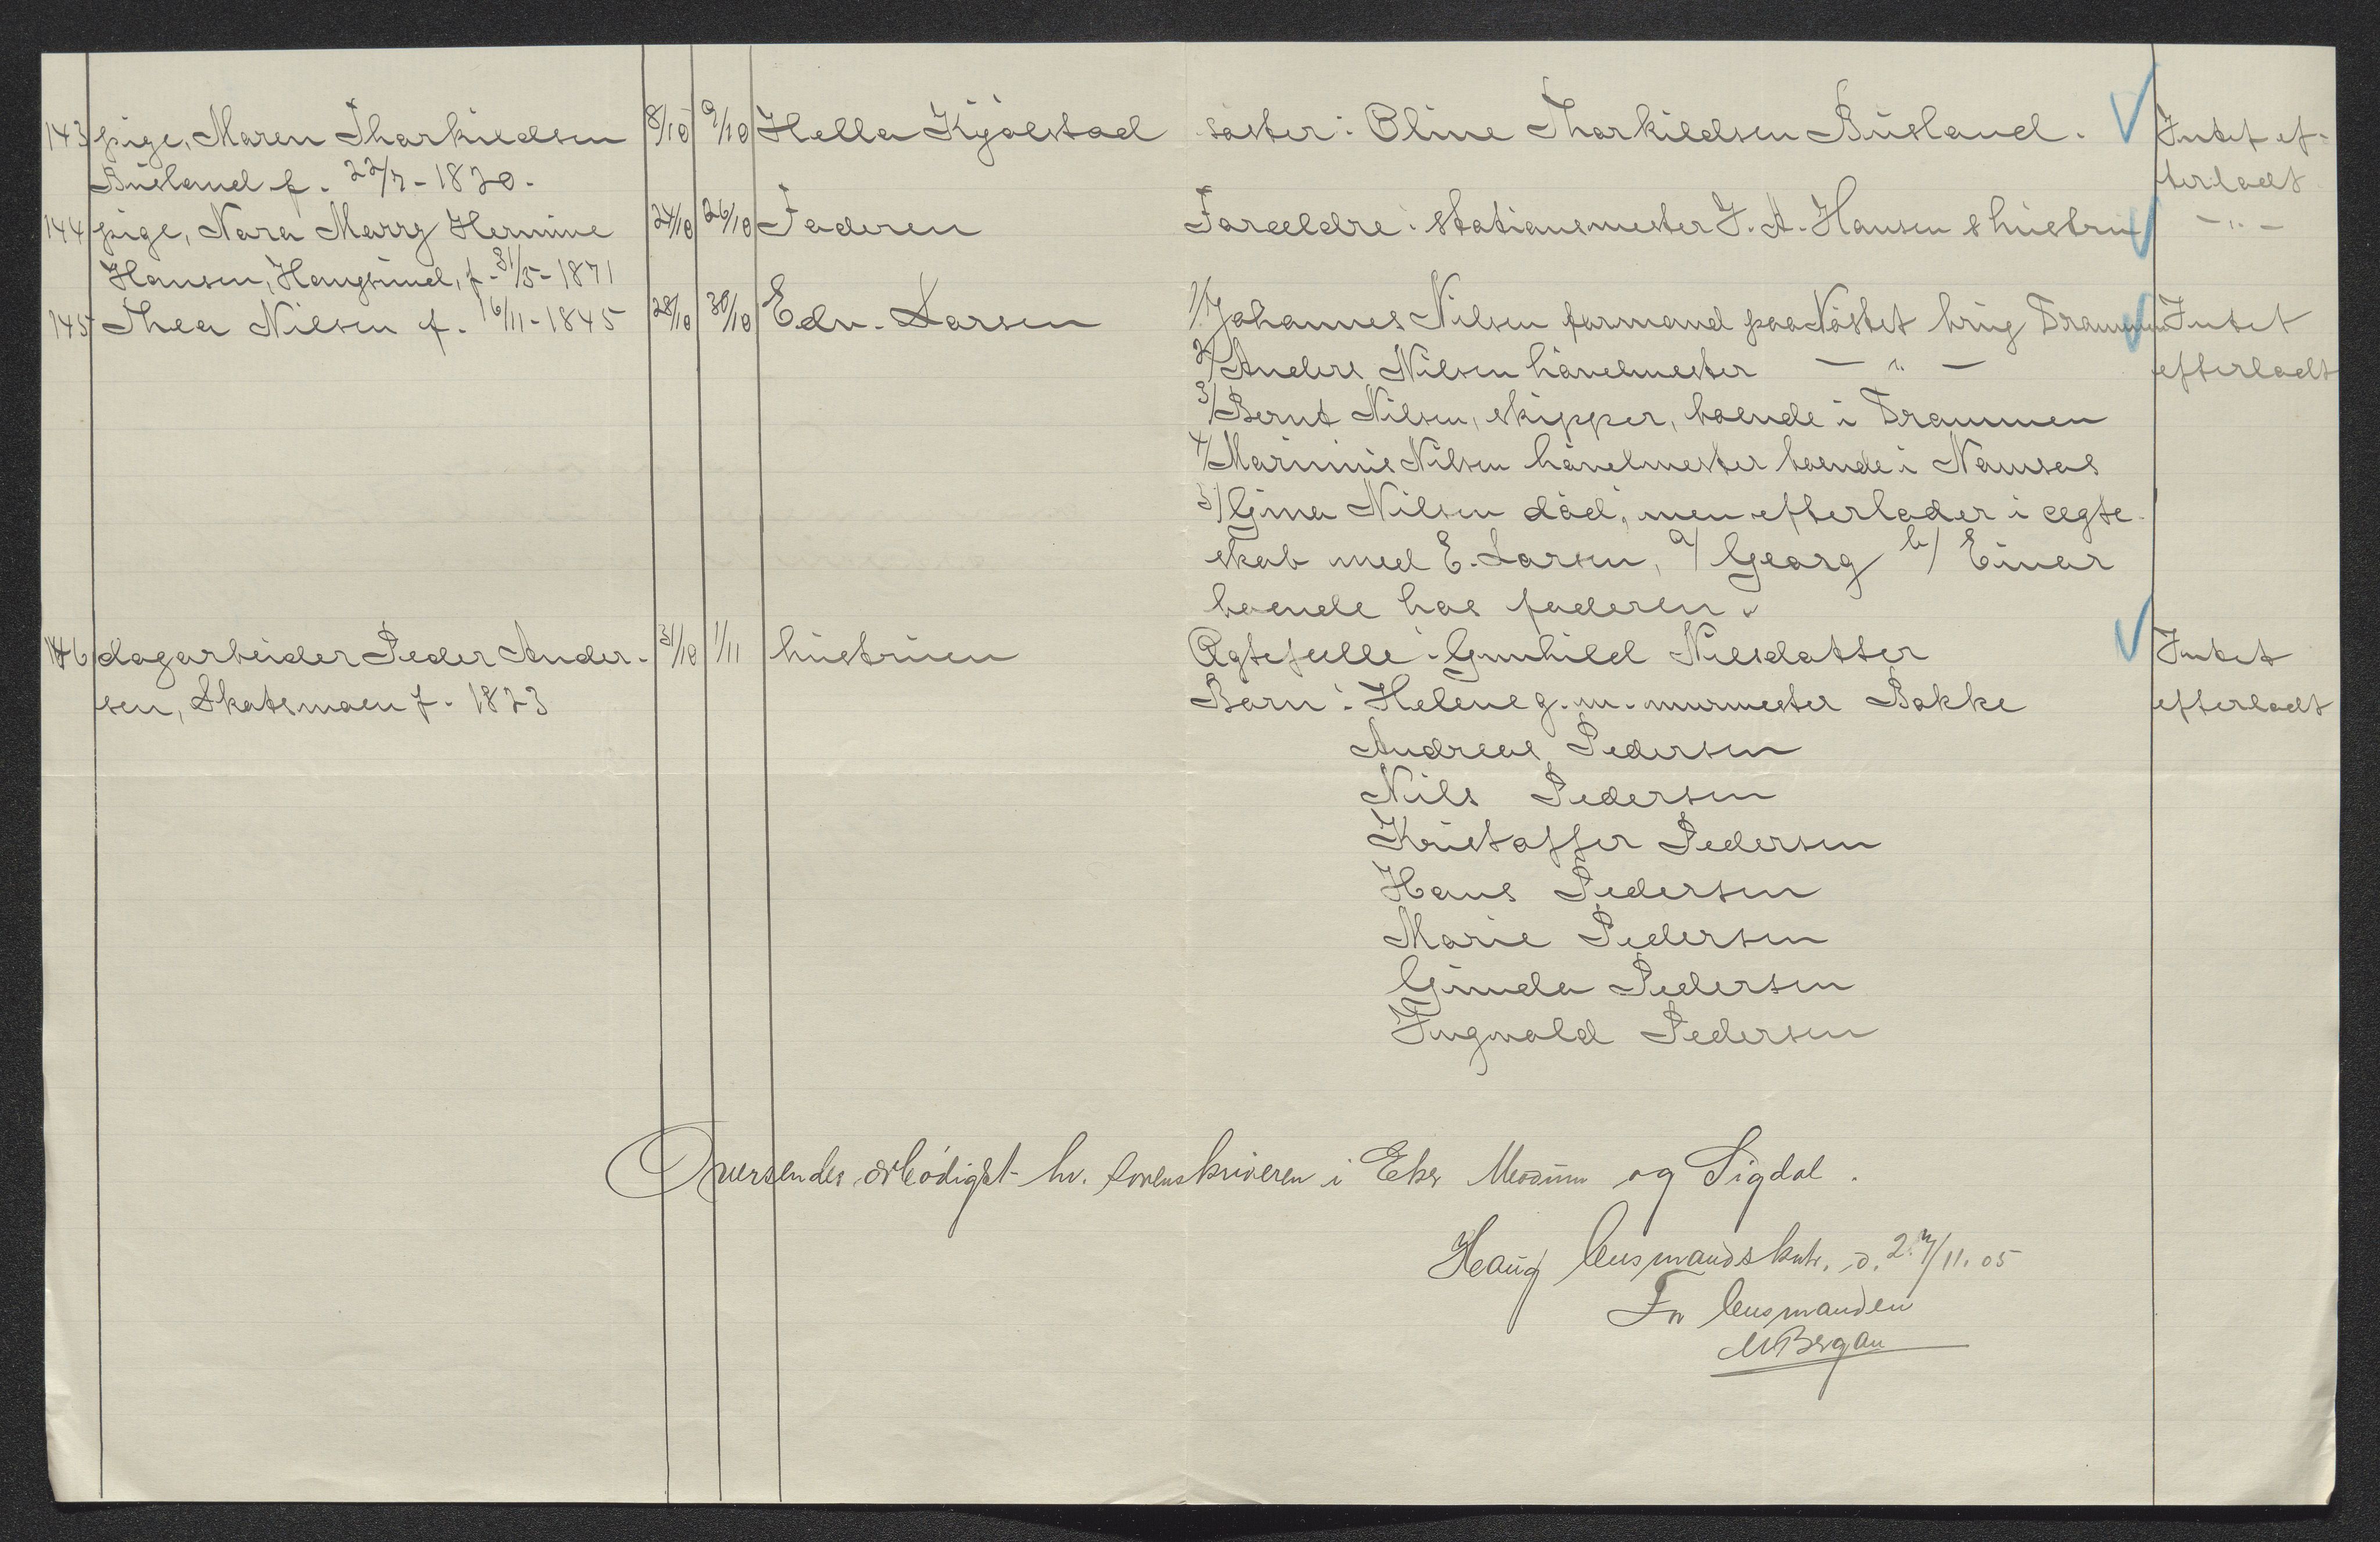 143 pige, Maren Tharkildsen 8/10 9/10 Hella Kjølstad søster: Oline Thorkildsen Būsland. Intet ef-
Būsland f. 22/7-1820. terladt
144 pige, Nara Marry Hermine 24/10 26/10 Faderen Forældre: stationsmester J. A. Hansen & hūstru - " -
Hansen, Hougsund, f. 31/5-1871
145 Thea Nilsen f. 16/11-1845 28/10 30/10 Edv. Larsen 1/ Johannes Nilsen formand paa Nøstet brug Drammen Intet
2/ Anders Nilsen høvelmester - " - efterladt
3/ Bernt Nilsen, skipper, boende i Drammen
4/ Marinius Nilsen høvelmester boende i Namsos
5/ Gina Nilsen død, men efterlader i ægte-
skab med E. Larsen, a/ Georg b/ Einar
boende hos faderen.
146 dagarbeider Peder Ander- 31/10 1/11 hūstruen Ægtefælle: Gunhild Nilsdatter Intet
sen, Skotsmoen f. 1823 Børn: Helene g. m. murmester Bakke efterladt
Andreas Pedersen
Nils Pedersen
Kristoffer Pedersen
Hans Pedersen
Marie Pedersen
Gunda Pedersen
Ingvald Pedersen
Oversendes ærbødigst hr. sorenskriveren i Eker Modum og Sigdal.
Haug lensmandskntr. d. 27/11.05
For lensmanden
M Bergan